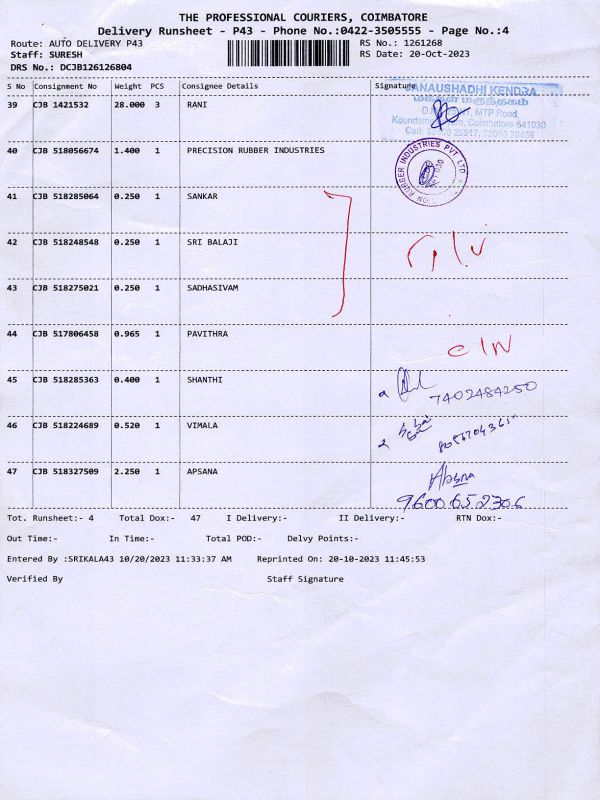 THE PROFESSIONAL COURIERS, COIMBATORE
Delivery Runsheet - P43 - Phone No.:0422-3505555 - Page No.:4
Route: AUTO DELIVERY P43 RS No.: 1261268
Staff: SURESH RS Date: 20-Oct-2023
DRS No.: DCJB126126804
S No Consignment No Weight PCS Consignee Details Signature
JANAUSHADHI KENDRA
மக்கள் மருந்தகம்
MTP Road,
Coimbatore-641030
39 CJB 1421532 28.000 3 RANI
40 CJB 518056674 1.400 1 PRECISION RUBBER INDUSTRIES
RUBBER INDUSTRIES PVT LTD
41 CJB 518285064 0.250 1 SANKAR
42 CJB 518248548 0.250 1 SRI BALAJI
43 CJB 518275021 0.250 1 SADHASIVAM
44 CJB 517806458 0.965 1 PAVITHRA
45 CJB 518285363 0.400 1 SHANTHI 7402484250
46 CJB 518224689 0.520 1 VIMALA
47 CJB 518327509 2.250 1 APSANA Absna
9600652306
Tot. Runsheet:- 4 Total Dox:- 47 I Delivery:- II Delivery:- RTN Dox:-
Out Time:- In Time:- Total POD:- Delvy Points:-
Entered By :SRIKALA43 10/20/2023 11:33:37 AM Reprinted On: 20-10-2023 11:45:53
Verified By Staff Signature